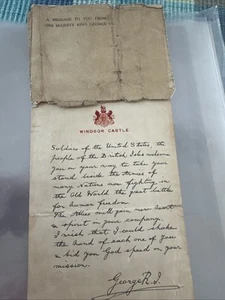 A MESSAGE TO YOU FROM
HIS MAJESTY KING GEORGE
WINDSOR CASTLE
Soldiers of the United States, the
people of the British Isles welcome
you on your way to take your
stand beside the Armies of
many Nations now fighting in
the Old World the great battle
for human freedom.
The Allies will gain new heart
& spirit in your company.
I wish that I could shake
the hand of each one of you
& bid you God speed on your
mission.
George R.I.